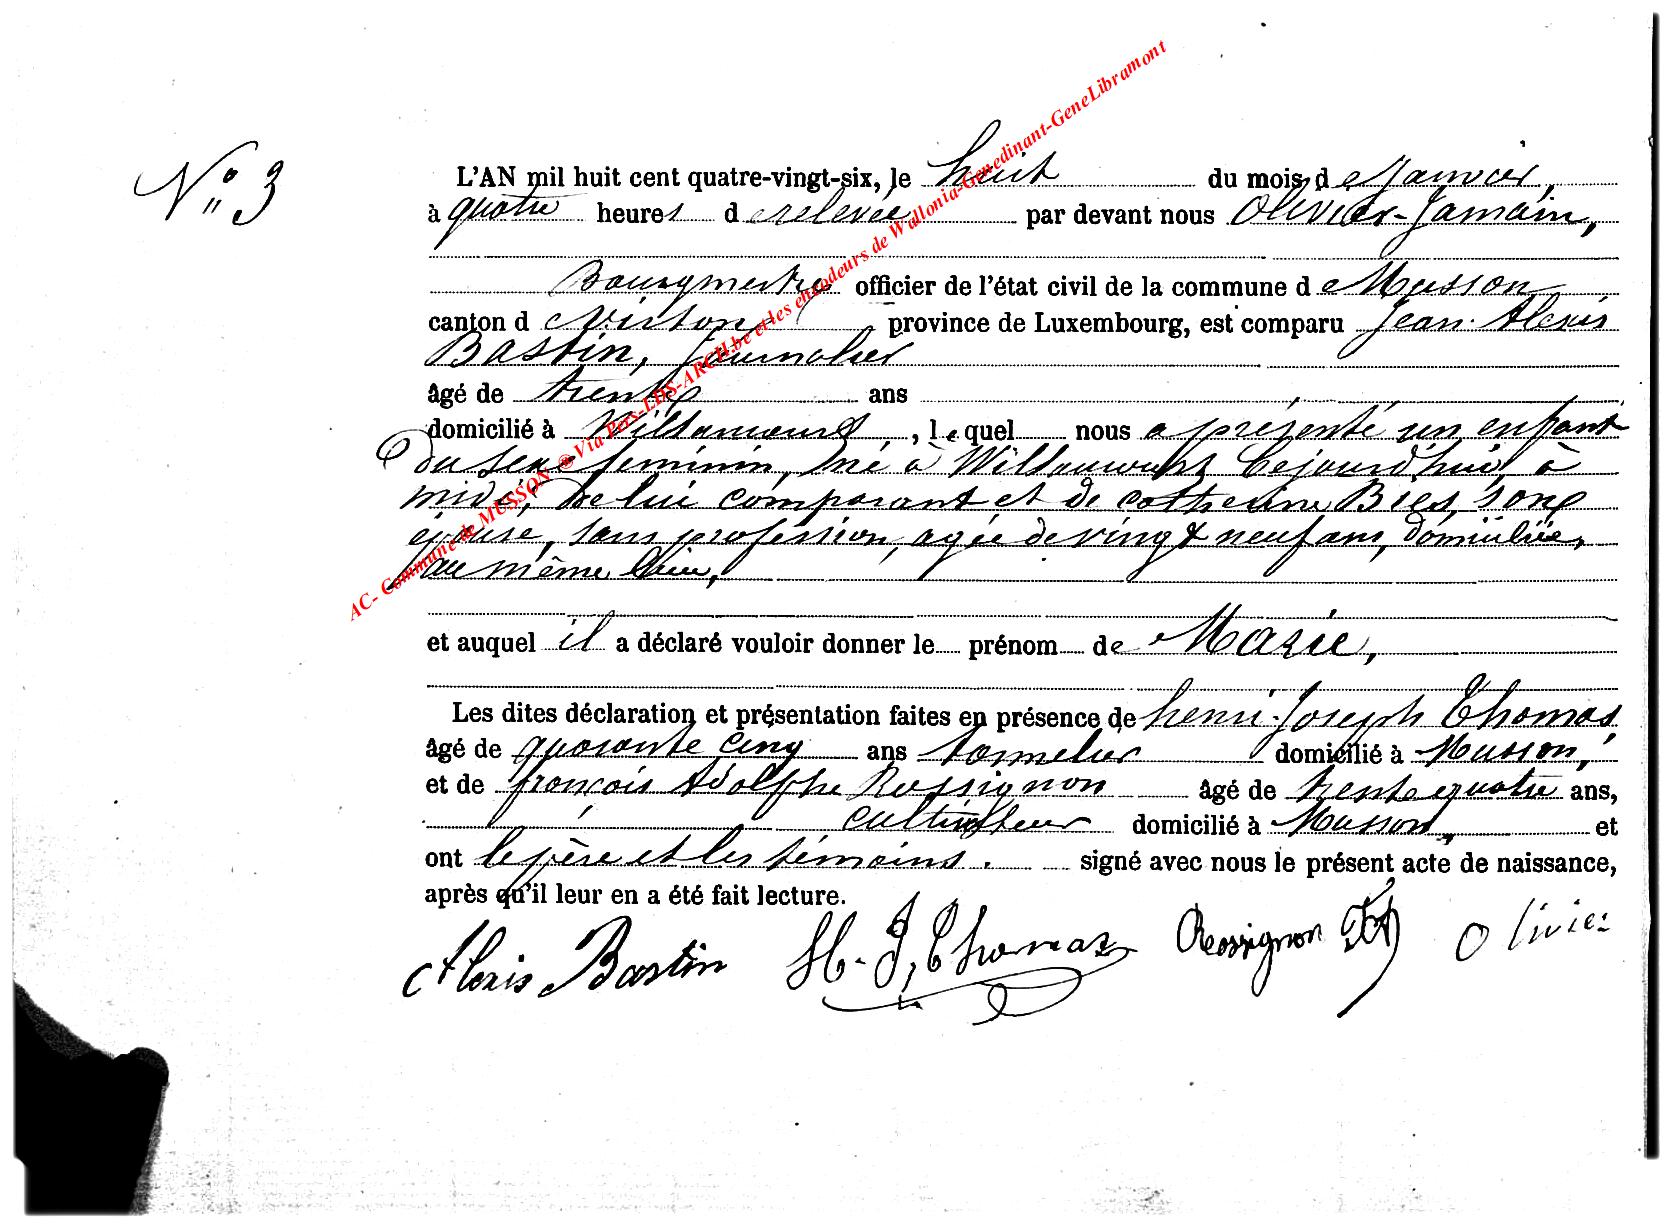 N° 3
L'AN mil huit cent quatre-vingt-six, le huit du mois de Janvier,
à quatre heures de relevée par devant nous Olivier-Jamain,
Bourgmestre officier de l'état civil de la commune de Musson
canton de Virton province de Luxembourg, est comparu Jean-Alexis
Bastin, journalier
âgé de trente ans
domicilié à Willancourt, lequel nous a présenté un enfant
du sexe féminin, né à Willancourt Cejourd'hui, à
midi, de lui comparant et de catherine Bies, son
épouse, sans profession, agée de vingt neuf ans, domiciliée,
au même lieu,
et auquel il a déclaré vouloir donner le prénom de Marie,
Les dites déclaration et présentation faites en présence de henri-Joseph Thomas,
âgé de quarante cinq ans tonnelier domicilié à Musson,
et de françois Adolphe Rossignon âgé de trente quatre ans,
cultivateur domicilié à Musson, et
ont le père et les témoins. signé avec nous le présent acte de naissance,
après qu'il leur en a été fait lecture.
Alexis Bastin H. J, Thomas Rossignon FA Olivier
AC- Commune de MUSSON ® Via Pers-LDS-ARCH.be et les encodeurs de Wallonia-Genedinant-GeneLibramont